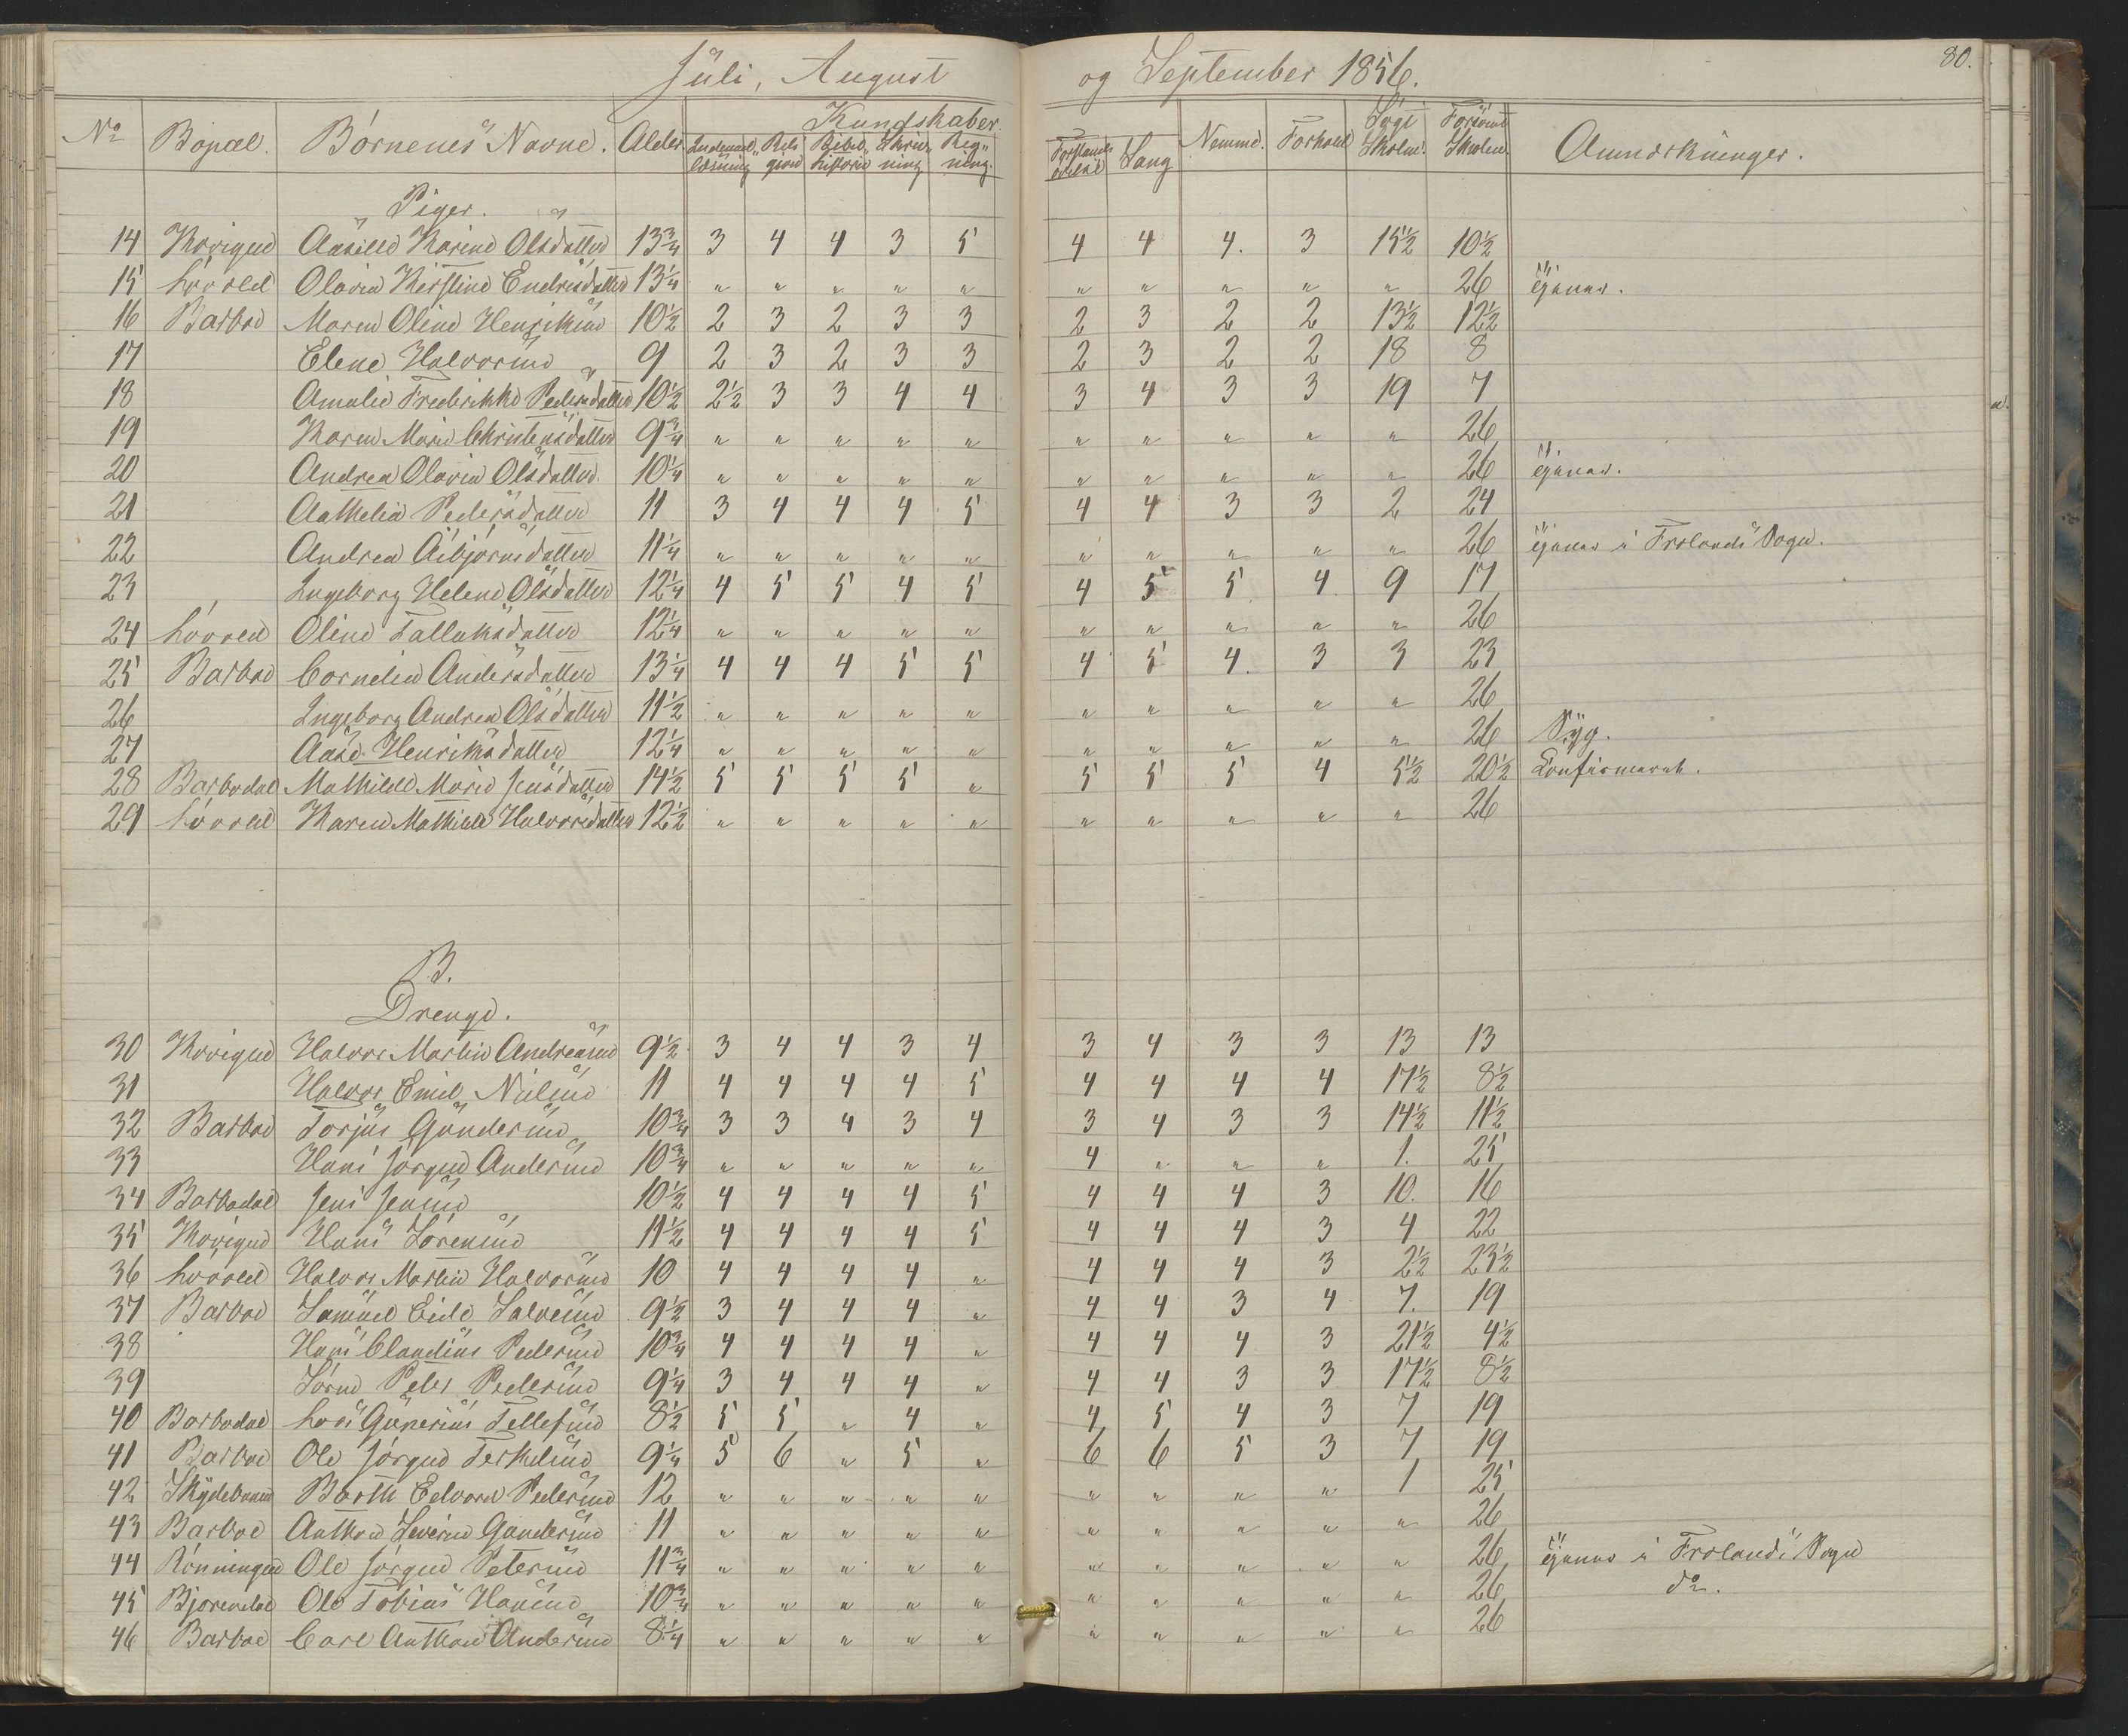 80.
Juli, August og September 1856.
No Bopæl. Børnenes Navne. Alder Kundskaber. Nemme. Forhold Søgt Skolen. Forsømt Skolen. Anmærkninger.
Indenadlæsning Religion Bibelhistorie Skrivning Regning Forstandsøvelse Sang
Piger.
14 Aasille Karine Olsdatter 13¾ 3 4 4 3 5 4 4 4. 3 15½ 10½
15 Olavia Kirstine Endresdatter 13¼ " " " " " " " " " " 26 tjener.
16 Barboe Maren Oline Henriksen 10½ 2 3 2 3 3 2 3 2 2 13½ 12½
17 Elene Halvorsen 9 2 3 2 3 3 2 3 2 2 18 8
18 Amalie Frederikke Pedersdatter 10½ 2½ 3 3 4 4 3 4 3 3 19 7
19 Karen Marie Christensdatter 9¾ " " " " " " " " " " 26
20 Andrea Olavia Olsdatter. 10¼ " " " " " " " " " " 26 tjener.
21 Pedersdatter 11 3 4 4 4 5 4 4 3 3 2 24
22 Andrea Asbjørnsdatter 11¼ " " " " " " " " " " 26 tjener i Frolands Sogn.
23 Ingeborg Helene Olsdatter 12¼ 4 5 5 4 5 4 5 5 4 9 17
24 Oline Tallaksdatter 12¼ " " " " " " " " " " 26
25 Barboe Cornelia Andersdatter 13¼ 4 4 4 5 5 4 5 4. 3 3 23
26 Ingeborg Andrea Olsdatter 11½ " " " " " " " " " " 26
27 Aase Henriksdatter 12¼ " " " " " " " " " " 26 Syg.
28 Barbodal Mathilde Marie Jensdatter 14½ 5 5 5 5 " 5 5 5 4 5½ 20½ Konfirmeret.
29 Karen Mathilde Halvorsdatter 12½ " " " " " " " " " " 26
B.
Drenge.
30 Halvor Martin Andreasen 9½ 3 4 4 3 4 3 4 3 3 13 13
31 Halvor Emil Nielsen 11 4 4 4 4 5 4 4 4 4 17½ 8½
32 Barboe Torjus Gundersen 10¾ 3 3 4 3 4 3 4 3 3 14½ 11½
33 Hans Jørgen Andersen 10¾ " " " " " 4 " " " 1. 25
34 Barbodal Jens Jensen 10½ 4 4 4 4 5 4 4 4 3 10. 16
35 Hans Sørensen 11½ 4 4 4 4 5 4 4 4 3 4 22
36 Halvor Martin Halvorsen 10 4 4 4 4 " 4 4 4 3 2½ 23½
37 Barboe Samuel Eide Salvesen 9½ 3 4 4 4 " 4 4 3 4 7. 19
38 Hans Claudius Pedersen 10¾ 4 4 4 4 " 4 4 4 3 21½ 4½
39 Søren Peter Pedersen 9¼ 3 4 4 4 " 4 4 3 3 17½ 8½
40 Barbodal Lars Tellefsen 8½ 5 5 " 4 " 4 5 4 3 7 19
41 Barboe Ole Jørgen Terkelsen 9¼ 5 6 " 5 " 6 6 5 3 7 19
42 Skydebanen Barth Edvard Pedersen 12 " " " " " " " " " 1 25
43 Barboe Anthon Severin Gundersen 11 " " " " " " " " " " 26
44 Rønningen Ole Jørgen Petersen 11¾ " " " " " " " " " " 26 tjener i Frolands Sogn
45 Bjorendal Ole Tobias Hansen 10¾ " " " " " " " " " " 26 do.
46 Barboe Carl Anthon Andersen 8¼ " " " " " " " " " " 26